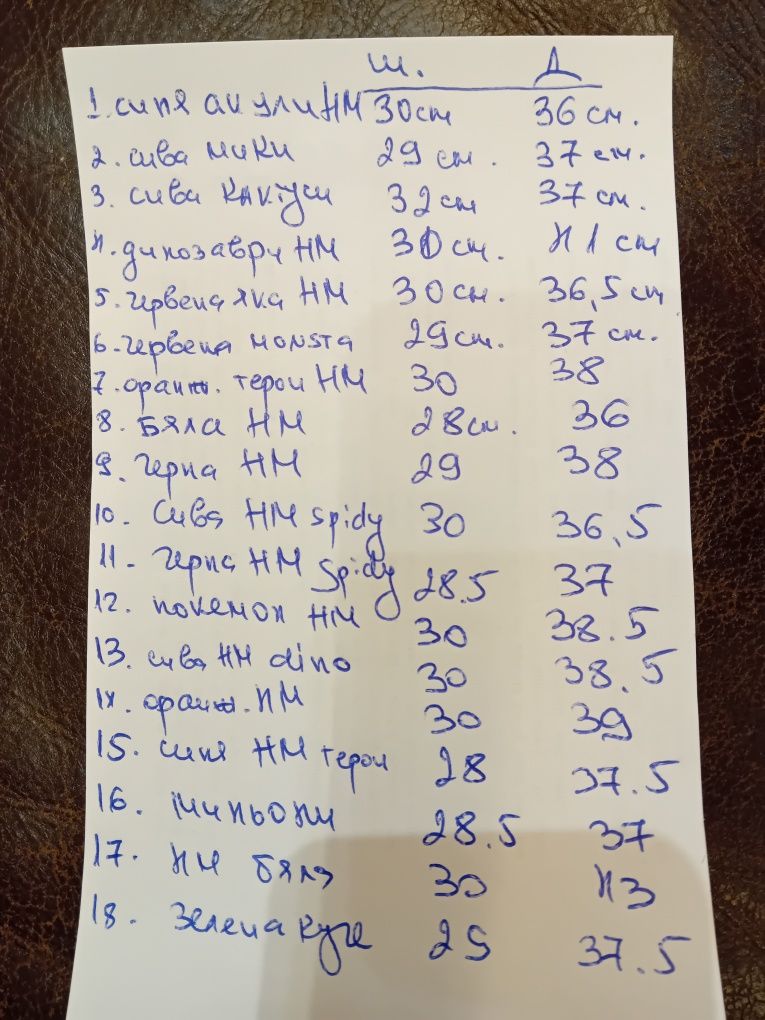 Ш. Д
1. синя акули НМ 30см 36 см.
2. сива мики 29 см. 37 см.
3. сива кактуси 32 см 37 см.
4. динозаври НМ 30 см. 41 см
5. червена яка НМ 30 см. 36,5 см
6. червена MONSTA 29 см. 37 см.
7. оранж. герои НМ 30 38
8. БЯЛА НМ 28 см. 36
9. Черна НМ 29 38
10. Сива НМ spidy 30 36,5
11. Черна НМ Spidy 28.5 37
12. покемон НМ 30 38.5
13. сива НМ dino 30 38.5
14. оранж. НМ 30 39
15. синя НМ герои 28 37.5
16. миньони 28.5 37
17. НМ бяла 30 43
18. Зелена куче 29 37.5